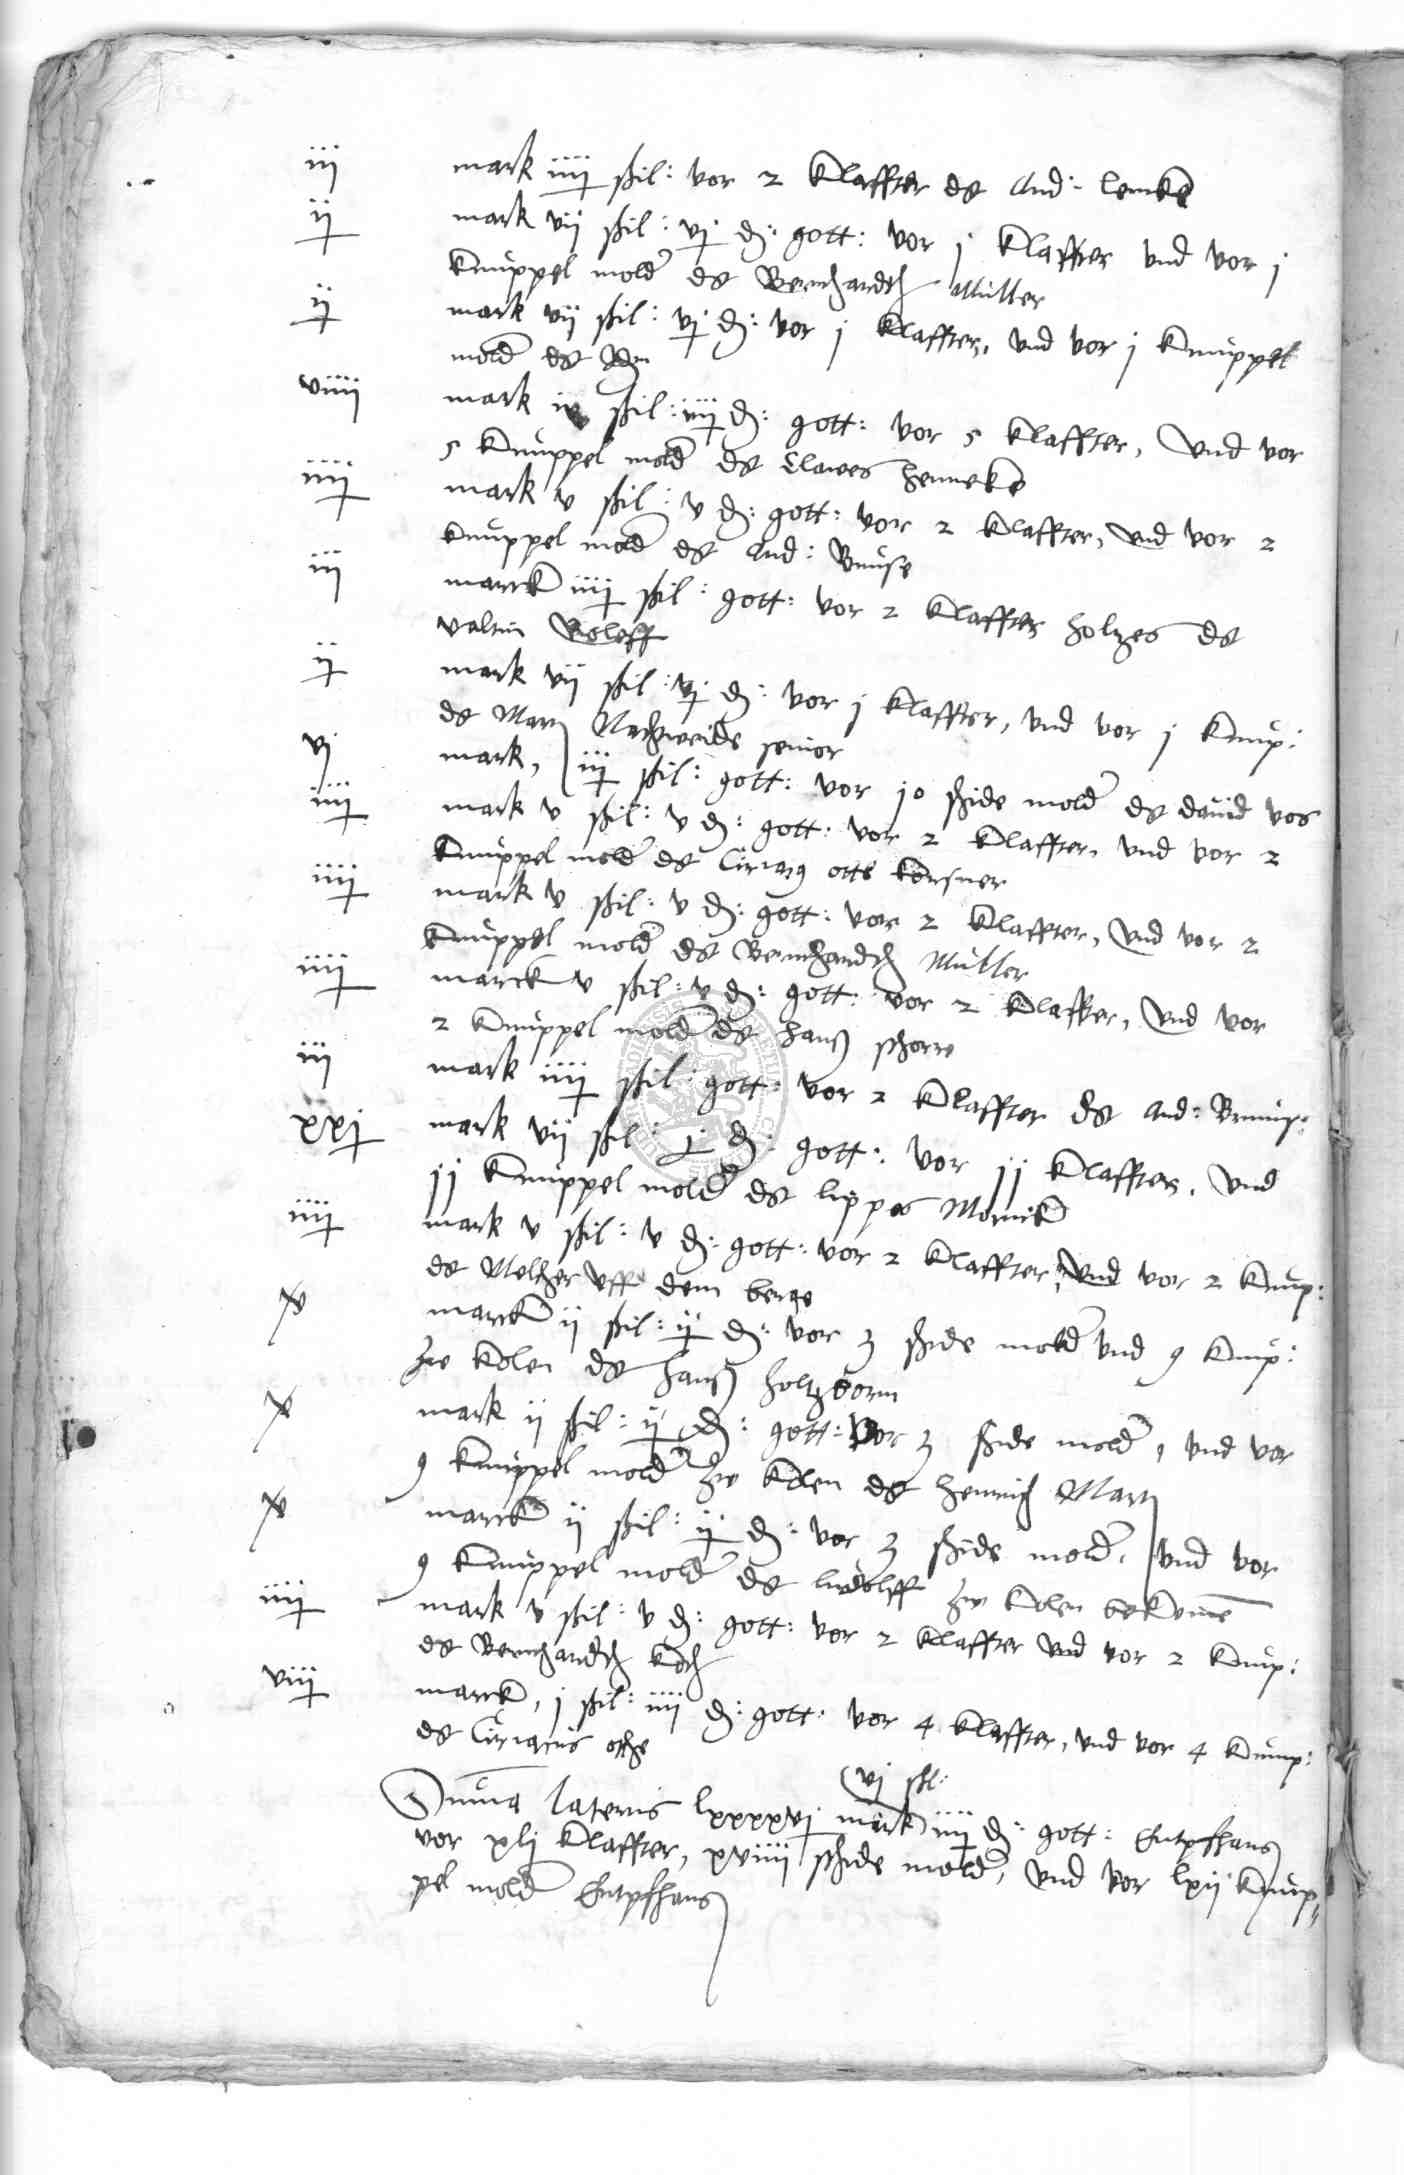 iii mark iiii ßil: vor 2 klaffter ds And: lemke
ii mark vii ßil: vj d: gott: vor j klaffter vnd vor j
knuppel molder ds Bernhardth Muller
ii mark vii ßil: vj d: vor j klaffter, vnd vor j knuppel
molder ds
viiii mark ßil: iiii d: gott: vor 5 klaffter, vnd vor
5 knuppel molder ds Clawes henneke
iiii mark v ßil: v d: gott: vor 2 klaffter, vnd vor 2
knuppel molder ds And: Bruse
iii marck iiii ßil: gott: vor 2 klaffter holzes ds
valtin Roleff
ii mark vii ßil: vj d: vor j klaffter, vnd vor j knup:
ds Marx senior
vj mark, iii ßil: gott: vor jo shide molder ds dauid vos
iiii mark v ßil: v d: gott: vor 2 klaffter, vnd vor 2
knuppel molder ds Ciriacg otte korsner
iiii mark v ßil: v d: gott: vor 2 klaffter, vnd vor 2
knuppel molder ds Bernhardth Muller
iiii marck v ßil: v d: gott: vor 2 klaffter, vnd vor
2 knuppel molder ds hanß schorre
iii mark iiii ßil: gott: vor 2 klaffter ds And:
xxj mark vii ßil: j d: gott: vor jj klaffter, vnd
jj knuppel molder ds lippes
iiii mark v ßil: v d: gott: vor 2 klaffter, vnd vor 2 knup:
ds Melcher vff dem berge
x marck ii ßil: ii d: vor 3 shide molder vnd 9 knup:
zw kolen ds hanß holtzborn
x mark ii ßil: ii d: gott: vor 3 shide molder, vnd vor
9 knuppel molder zw kolen ds henrich Marx
x marck ii ßil: ii d: vor 3 shide molder, vnd vor
9 knuppel molder ds ludolff zw kolen
iiii mark v ßil: v d: gott: vor 2 klaffter vnd vor 2 knup:
ds Bernhardth koch
viii marck, j ßil: iiii d: gott: vor 4 klaffter, vnd vor 4 knup:
ds Ciriacus othe
vj ßil:
Suma lateris lxxxxvj mark iiii d: gott:
vor xlj klaffter, xviiii shide molder, vnd vor lxii knup
pel molder